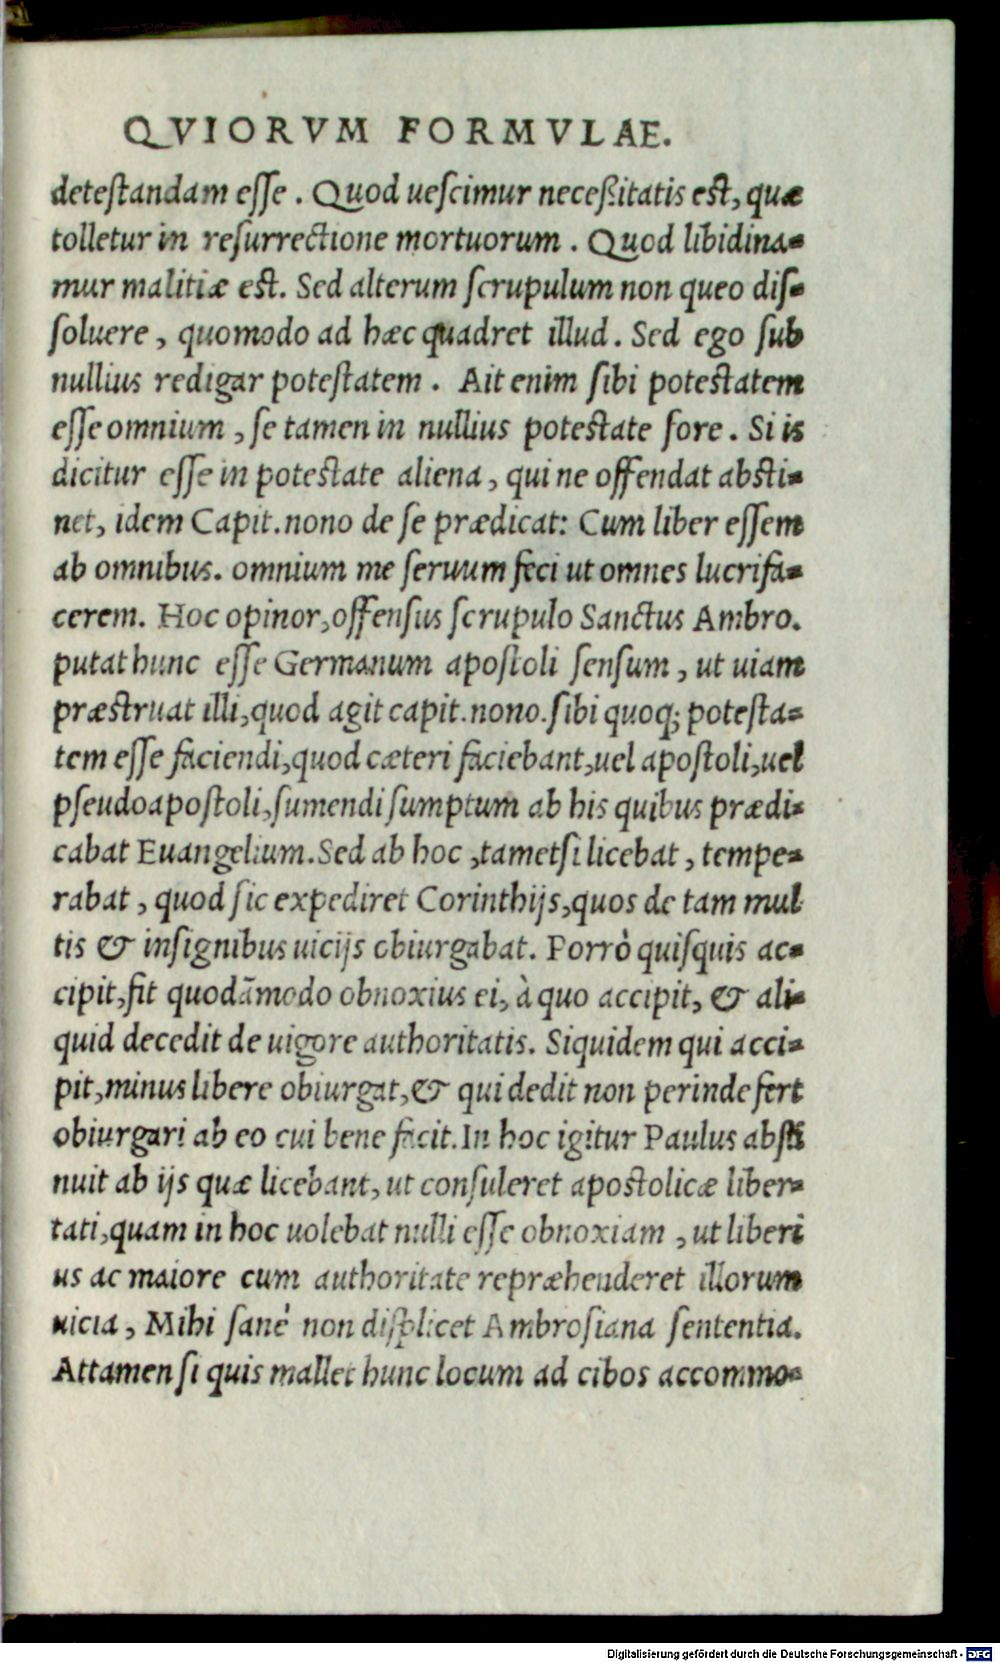 QVIORVM FORMVLAE.
detestandam esse . Quod uescimur neceßitatis est, quæ
tolletur in resurrectione mortuorum . Quod libidina-
mur malitiæ est. Sed alterum scrupulum non queo dis-
soluere , quomodo ad hæc quadret illud . Sed ego sub
nullius redigar potestatem . Ait enim sibi potestatem
esse omnium , se tamen in nullius potestate fore . Si is
dicitur esse in potestate aliena , qui ne offendat absti-
net, idem Capit. nono de se prædicat: Cum liber essem
ab omnibus. omnium me seruum feci ut omnes lucrifa-
cerem. Hoc opinor, offensus scrupulo Sanctus Ambro.
putat hunc esse Germanum apostoli sensum , ut uiam
præstruat illi, quod agit capit. nono. sibi quoq; potesta-
tem esse faciendi, quod cæteri faciebant, uel apostoli, uel
pseudoapostoli, sumendi sumptum ab his quibus prædi-
cabat Euangelium. Sed ab hoc , tametsi licebat , tempe-
rabat , quod sic expediret Corinthijs, quos de tam mul
tis & insignibus uicijs obiurgabat. Porrò quisquis ac-
cipit, fit quodãmodo obnoxius ei, à quo accipit, & ali-
quid decedit de uigore authoritatis. Siquidem qui acci-
pit, minus libere obiurgat, & qui dedit non perinde fert
obiurgari ab eo cui bene facit. In hoc igitur Paulus absti
nuit ab ijs quæ licebant, ut consuleret apostolicæ liber-
tati, quam in hoc uolebat nulli esse obnoxiam , ut liberi
us ac maiore cum authoritate repræhenderet illorum
uicia , Mihi sanè non displicet Ambrosiana sententia.
Attamen si quis mallet hunc locum ad cibos accommo-
Digitalisierung gefördert durch die Deutsche Forschungsgemeinschaft - DFG